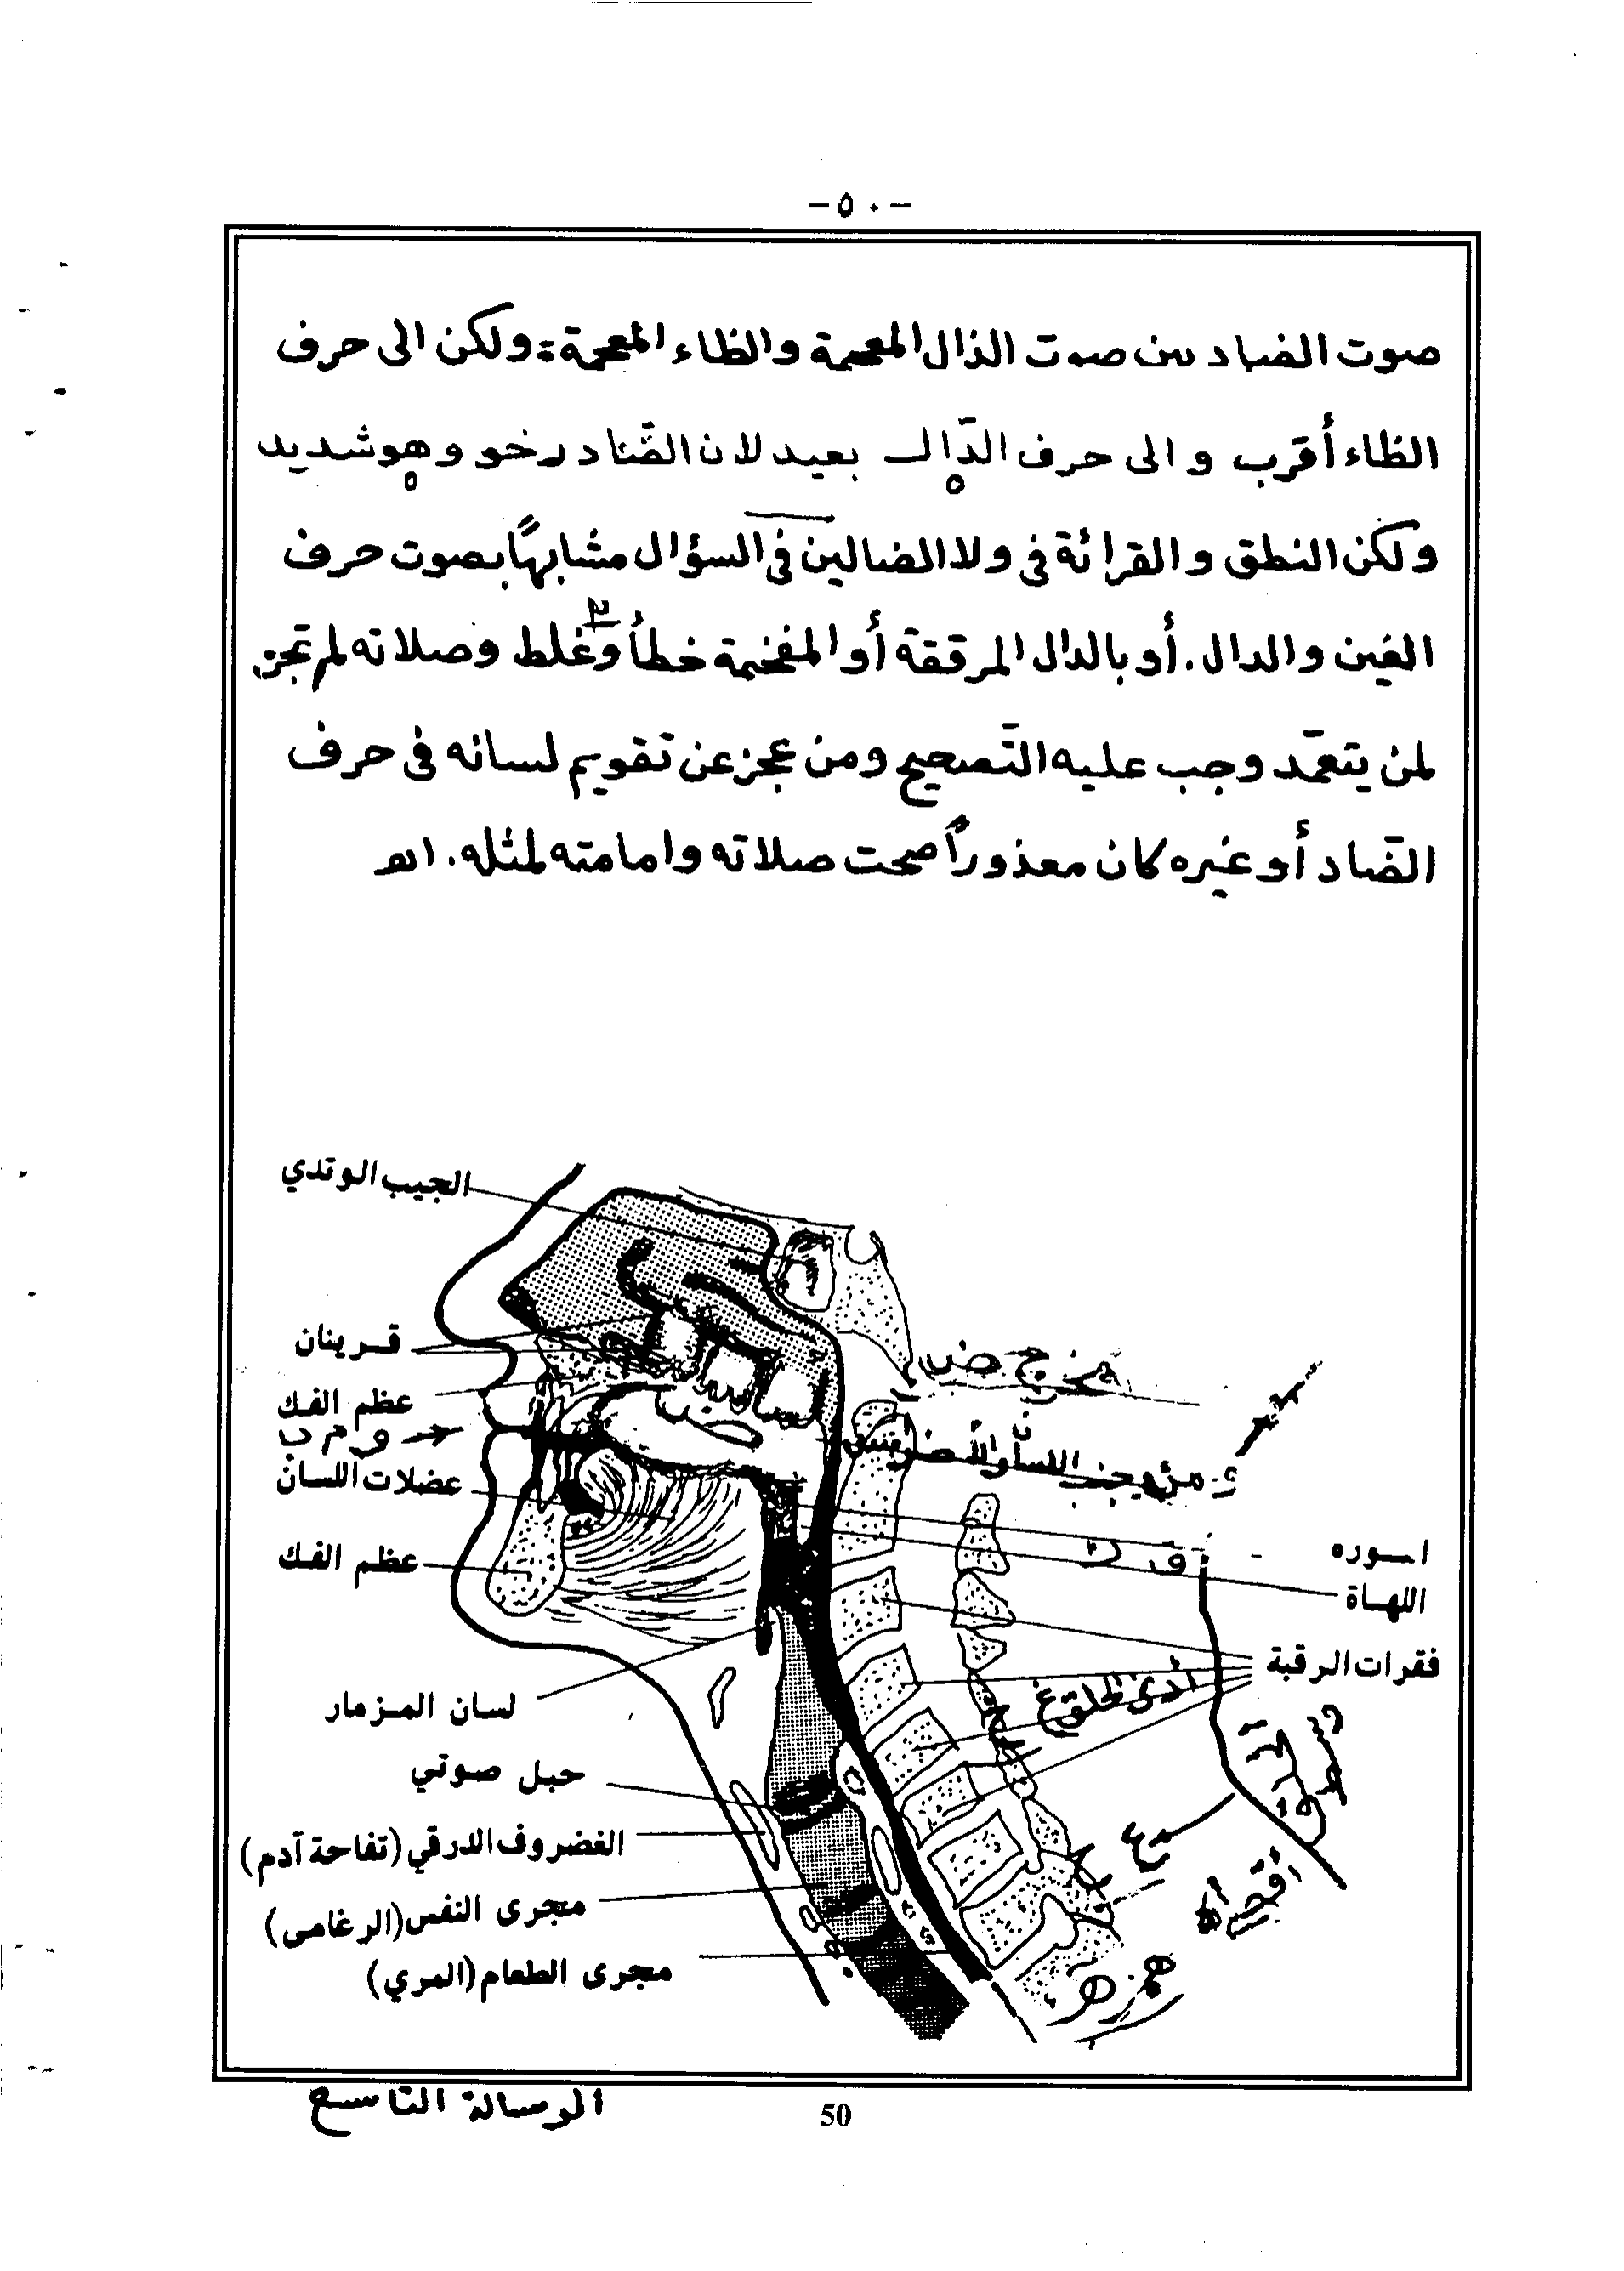 -٥٠-
صوت الضاد بين صوت الذال المعجمة والظاء المعجمة: ولكن الى حرف
الظاء أقرب والى حرف الدّال بعيد لان الضّاد رخو وهو شديد
ولكن النطق والقرائة فى ولا الضالين فى السؤال مشابهًا بصوت حرف
الغين والدال. أو بالدال المرققة أو المفخمة خطأ وغلط وصلاته لم تجز
لمن يتعمّد وجب عليه التّصحيح ومن عجز عن تقويم لسانه فى حرف
الضّاد أو غيره كان معذوراً صحت صلاته وامامته لمثله. اهـ
الجيب الوتدي
قرينان
مخرج ض
عظم الفك
و م ب
عضلات اللسان
عظم الفك
اللهاة
فقرات الرقبة
لسان المزمار
أدنى الحلق غ خ
وسط الحلق
حبل صوتي
ع ح
الغضروف الدرقي (تفاحة آدم)
أقصاه
مجرى النفس (الرغامى)
همزه هـ
مجرى الطعام (المري)
الرسالة التاسع
50